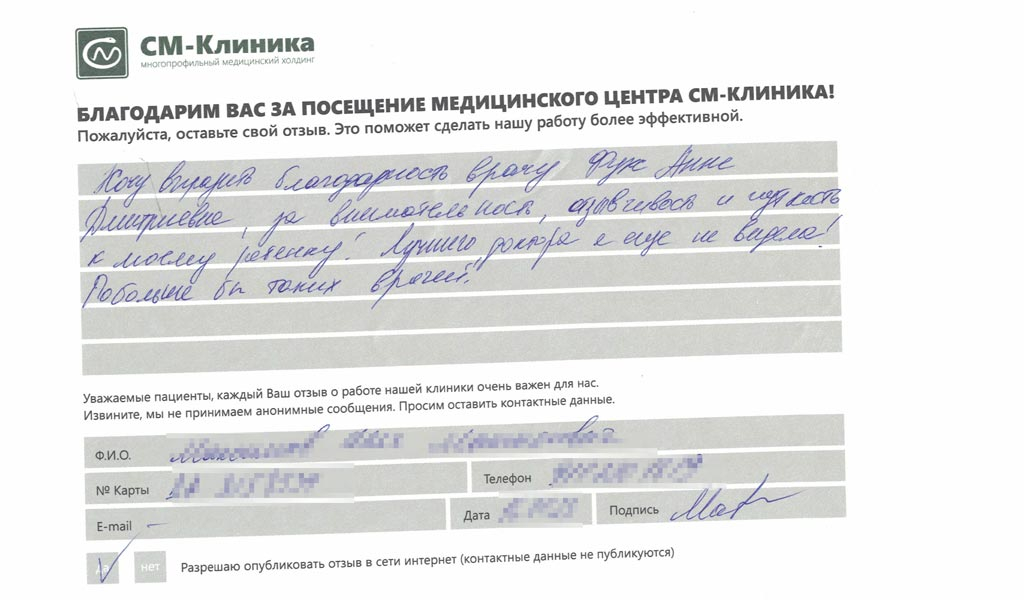 СМ-Клиника
многопрофильный медицинский холдинг
БЛАГОДАРИМ ВАС ЗА ПОСЕЩЕНИЕ МЕДИЦИНСКОГО ЦЕНТРА СМ-КЛИНИКА!
Пожалуйста, оставьте свой отзыв. Это поможет сделать нашу работу более эффективной.
Хочу выразить благодарность врачу Фук Анне
Дмитриевне, за внимательность, отзывчивость и чуткость
к моему ребенку! Лучшего доктора я еще не видела!
Побольше бы таких врачей.
Уважаемые пациенты, каждый Ваш отзыв о работе нашей клиники очень важен для нас.
Извините, мы не принимаем анонимные сообщения. Просим оставить контактные данные.
Ф.И.О.
№ Карты
Телефон
E-mail –
Дата
Подпись
да нет Разрешаю опубликовать отзыв в сети интернет (контактные данные не публикуются)